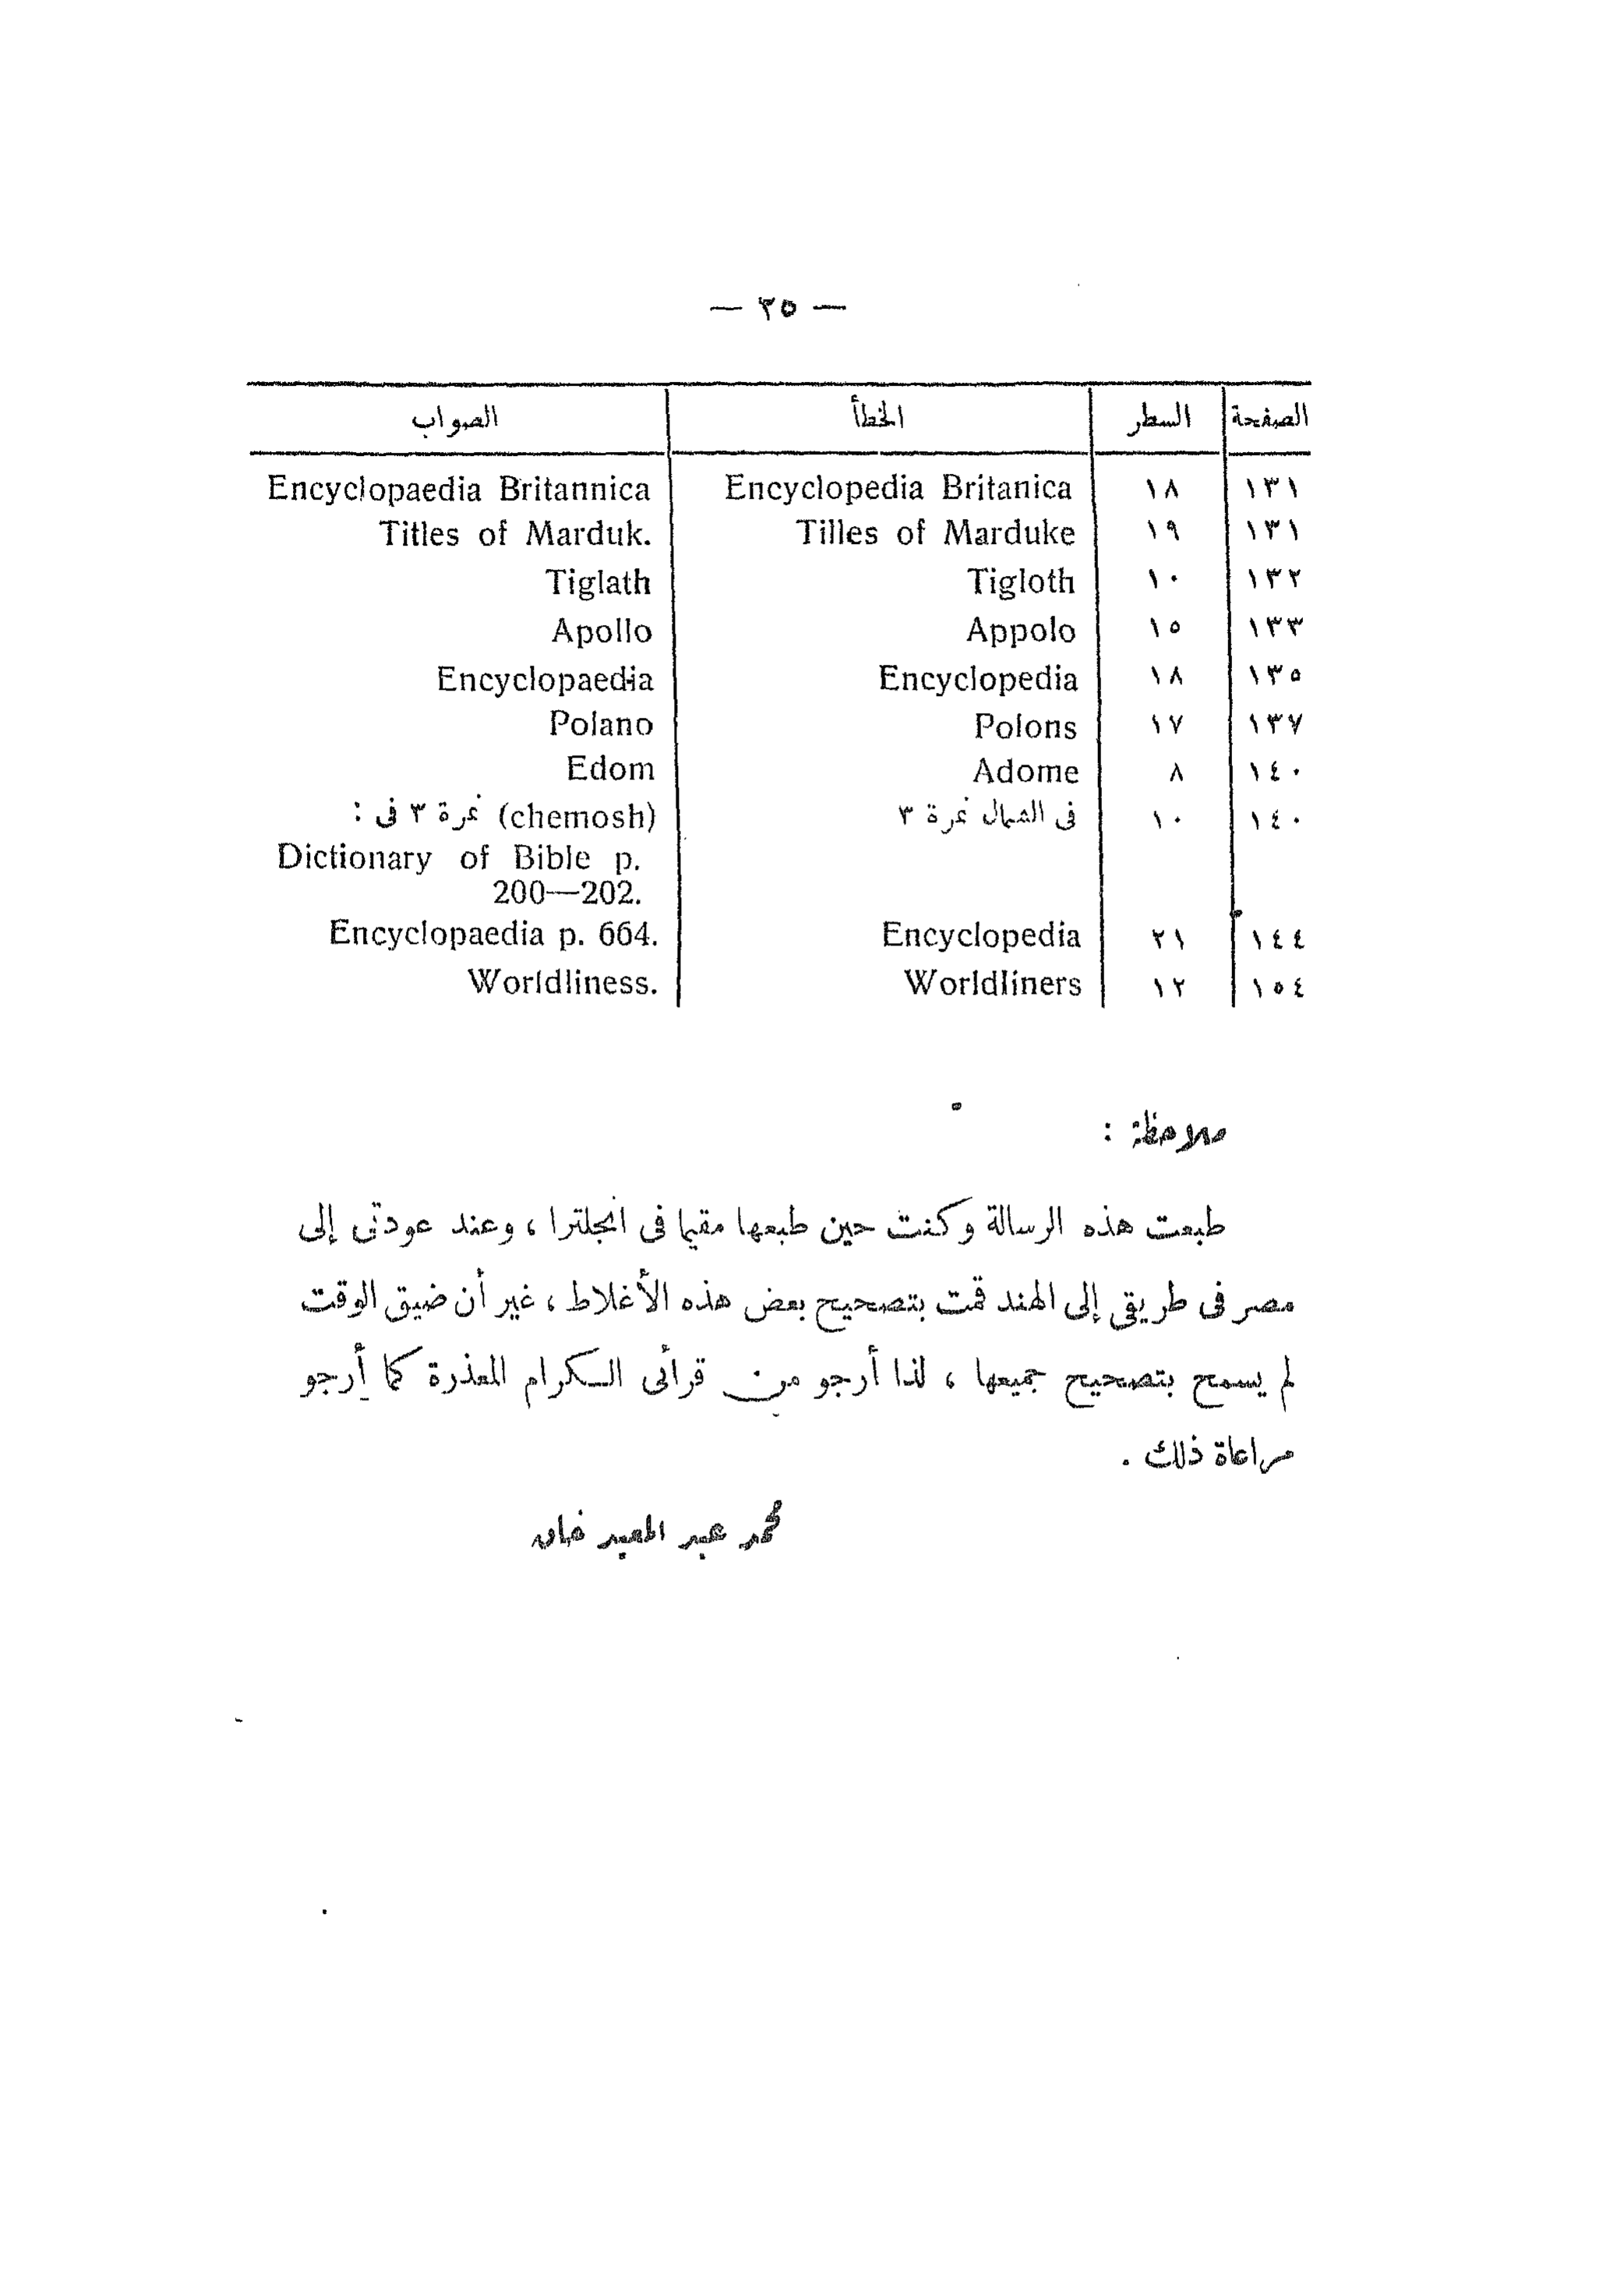 — ٢٥ —
الصفحة السطر الخطأ الصواب
١٣١ ١٨ Encyclopedia Britanica Encyclopaedia Britannica
١٣١ ١٩ Tilles of Marduke Titles of Marduk.
١٣٢ ١٠ Tigloth Tiglath
١٣٣ ١٥ Appolo Apollo
١٣٥ ١٨ Encyclopedia Encyclopaedia
١٣٧ ١٧ Polons Polano
١٤٠ ٨ Adome Edom
١٤٠ ١٠ فى الشمال نمرة ٣ (chemosh) نمرة ٣ فى :
Dictionary of Bible p.
200—202.
١٤٤ ٢١ Encyclopedia Encyclopaedia p. 664.
١٥٤ ١٢ Worldliners Worldliness.
ملاحظة :
طبعت هذه الرسالة وكنت حين طبعها مقيما فى انجلترا ، وعند عودتى إلى
مصر فى طريقى إلى الهند قمت بتصحيح بعض هذه الأغلاط ، غير أن ضيق الوقت
لم يسمح بتصحيح جميعها ، لذا أرجو من قرائى الكرام المعذرة كما أرجو
مراعاة ذلك .
محمد عبد المعيد خان